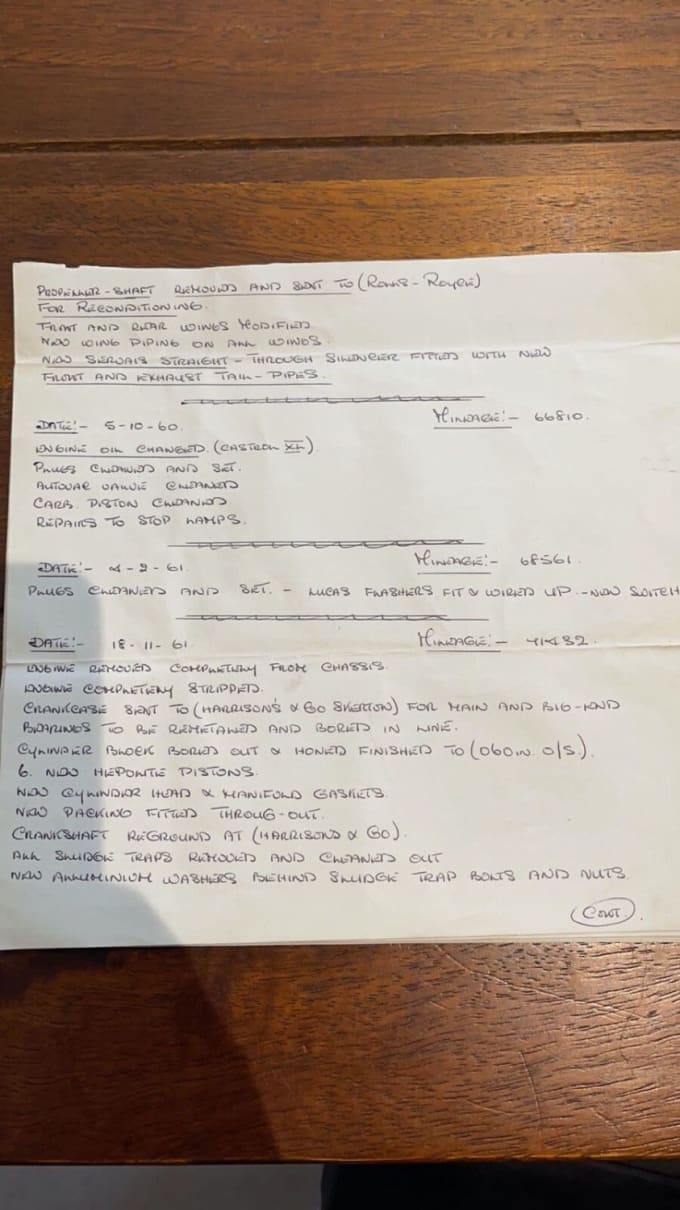 PROPELLER-SHAFT REMOVED AND SENT TO (ROLLS-ROYCE)
FOR RECONDITIONING.
FRONT AND REAR WINGS MODIFIED
NEW WING PIPING ON ALL WINGS.
NEW SERVAIS STRAIGHT-THROUGH SILENCER FITTED WITH NEW
FRONT AND EXHAUST TAIL-PIPES.
DATE:- 5-10-60. MILEAGE:- 66810.
ENGINE OIL CHANGED. (CASTROL XL).
PLUGS CLEANED AND SET.
AUTOVAC VALVE CLEANED
CARB. PISTON CLEANED.
REPAIRS TO STOP LAMPS.
DATE:- 4-2-61. MILEAGE:- 68561.
PLUGS CLEANED AND SET. - LUCAS FLASHERS FIT & WIRED UP.-NEW SWITCH
DATE:- 18-11-61. MILEAGE:- 71432.
ENGINE REMOVED COMPLETELY FROM CHASSIS.
ENGINE COMPLETELY STRIPPED.
CRANKCASE SENT TO (HARRISON'S & CO SKERTON) FOR MAIN AND BIG-END
BEARINGS TO BE REMETALED AND BORED IN LINE.
CYLINDER BLOCK BORED OUT & HONED FINISHED TO (060 IN. O/S.).
6. NEW HEPOLITE PISTONS.
NEW CYLINDER HEAD & MANIFOLD GASKETS.
NEW PACKING FITTED THROUG-OUT.
CRANKSHAFT REGROUND AT (HARRISONS & CO).
ALL SLUDGE TRAPS REMOVED AND CLEANED OUT
NEW ALLUMINIUM WASHERS BEHIND SLUDGE TRAP BOLTS AND NUTS.
(CONT.).